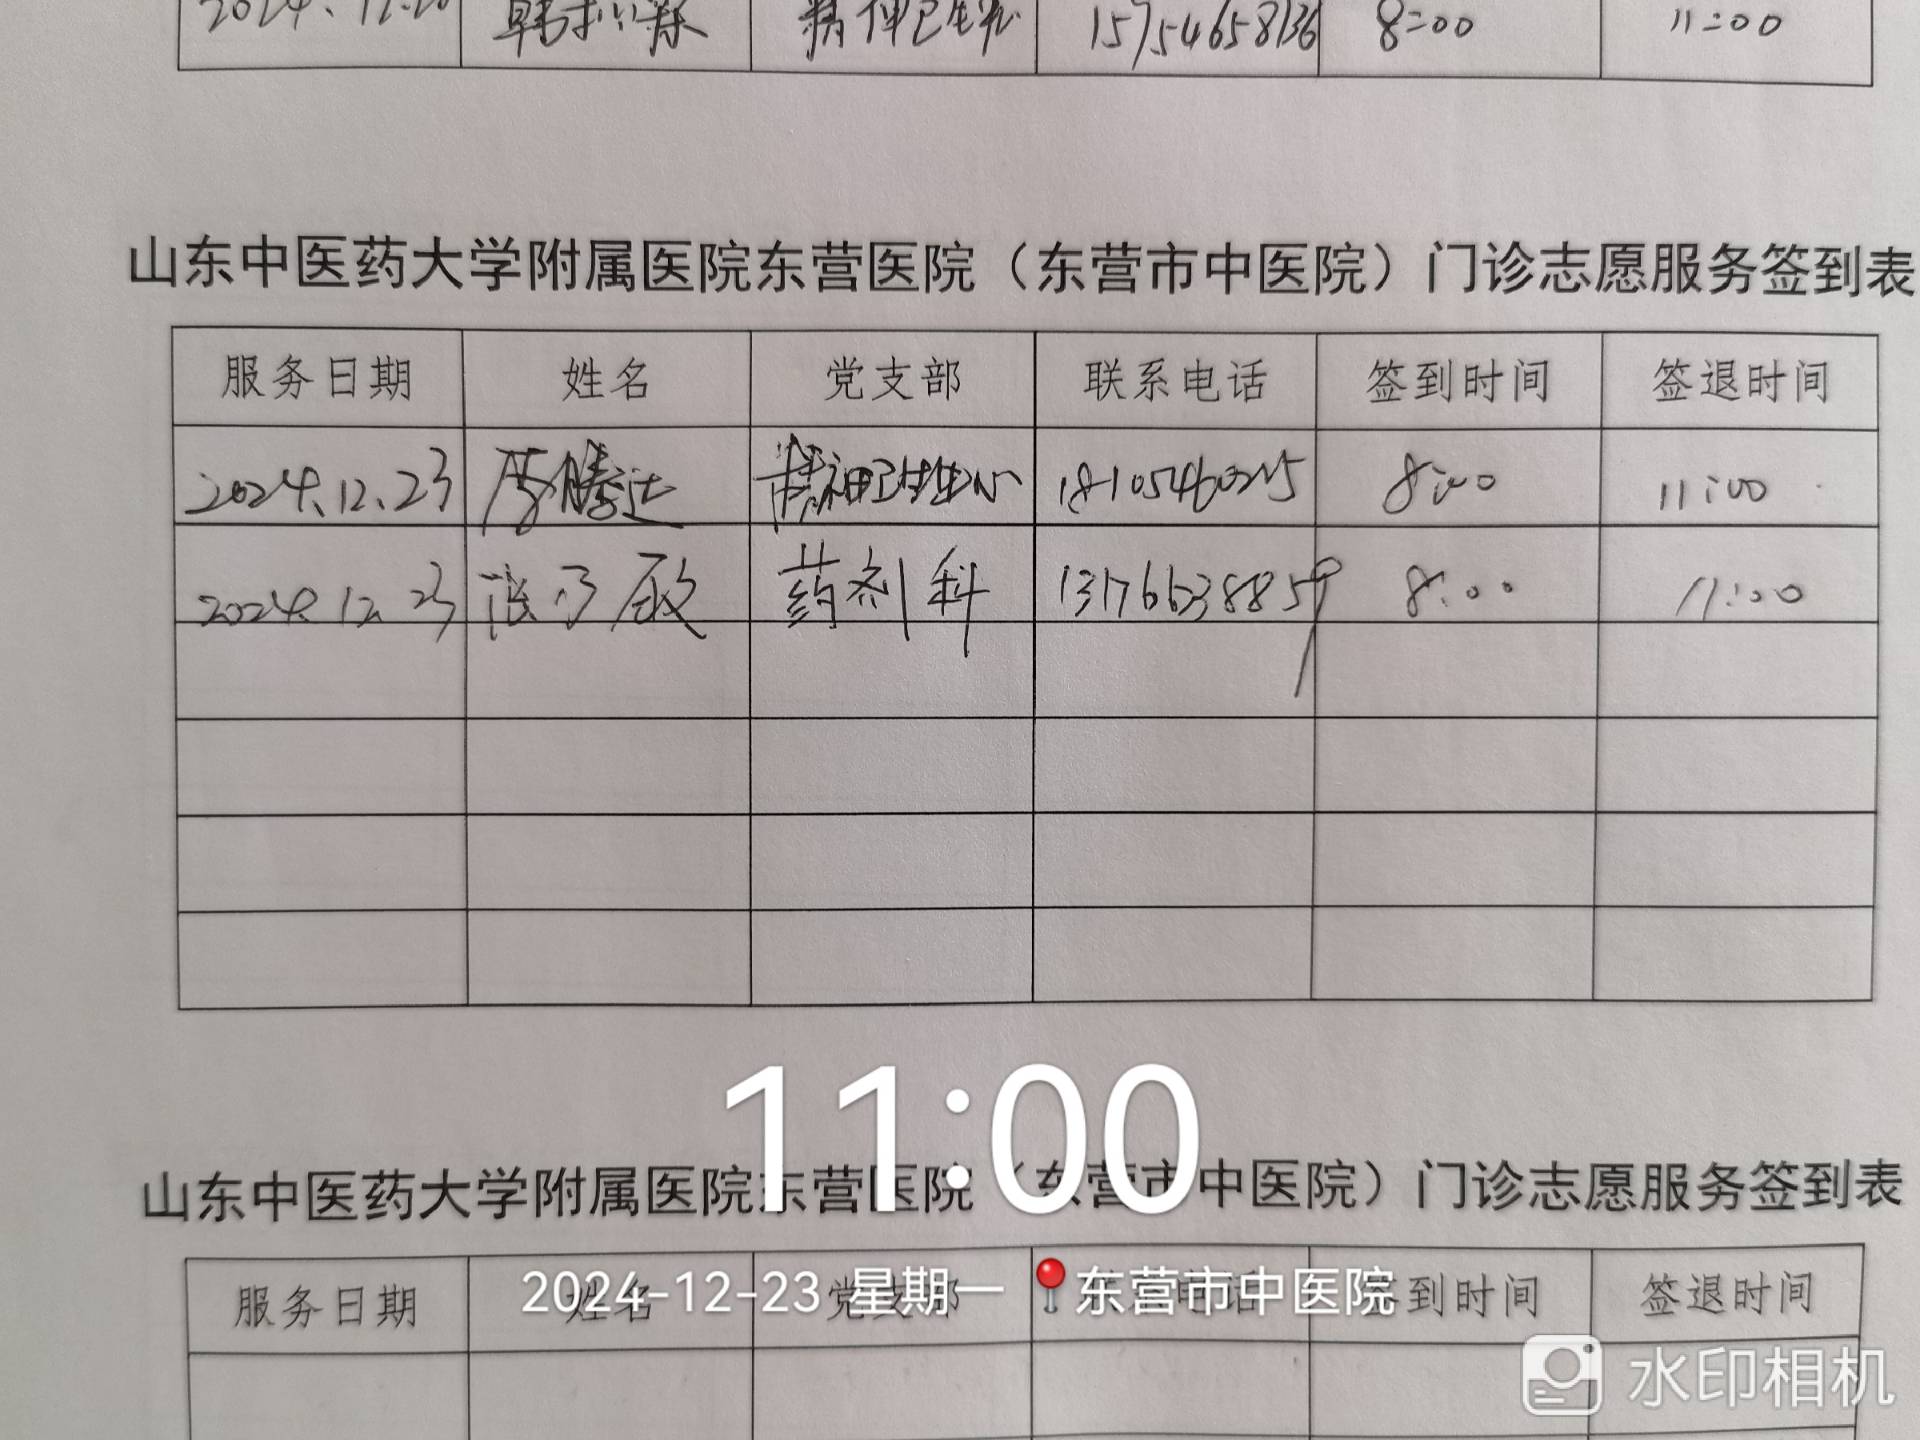 精神卫生科 15754658136 8:00 11:00
山东中医药大学附属医院东营医院（东营市中医院）门诊志愿服务签到表
服务日期 姓名 党支部 联系电话 签到时间 签退时间
2024.12.23 李腾达 精神卫生中心 8:00 11:00
2024.12.23 药剂科 13176638859 8:00 11:00
11:00
山东中医药大学附属医院东营医院（东营市中医院）门诊志愿服务签到表
服务日期 姓名 党支部 联系电话 签到时间 签退时间
2024-12-23 星期一 东营市中医院
水印相机